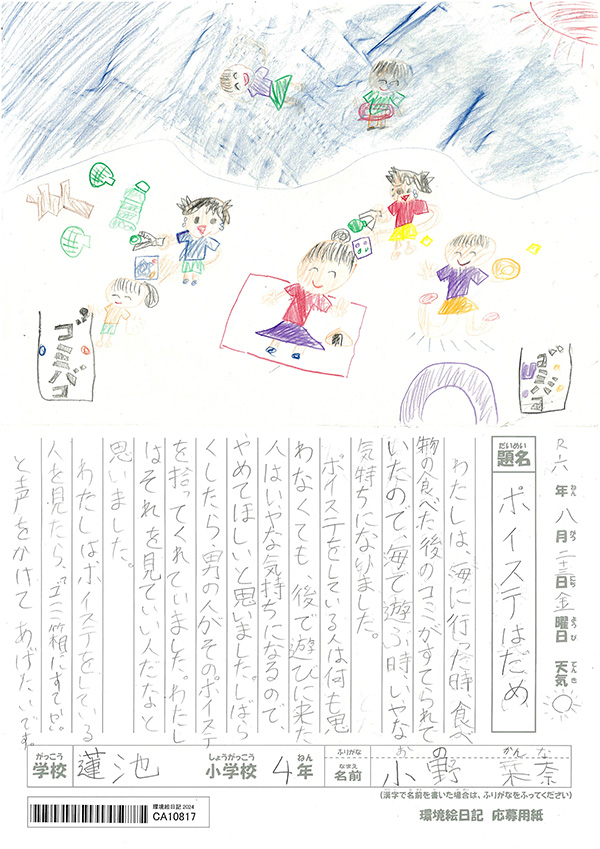 ゴミバコ
R六年八月二十三日金曜日 天気
ねん がつ にち ようび てんき
だいめい
題名 ポイステはだめ
わたしは、海に行った時、食べ
物の食べた後のゴミがすてられて
いたので、海で遊ぶ時、いやな
気持ちになりました。
ポイステをしている人は何も思
わなくても、後で遊びに来た
人はいやな気持ちになるので、
やめてほしいと思いました。しばら
くしたら、男の人がそのポイステ
を拾ってくれていました。わたし
はそれを見ていい人だなと
思いました。
わたしはポイステをしている
人を見たら、「ゴミ箱にすててね。」
と声をかけてあげたいです。
がっこう しょうがっこう ねん ふりがな お の かん な
学校 蓮池 小学校 4年 名前 小野 栞奈
なまえ
(漢字で名前を書いた場合は、ふりがなをふってください)
環境絵日記2024
CA10817
環境絵日記 応募用紙